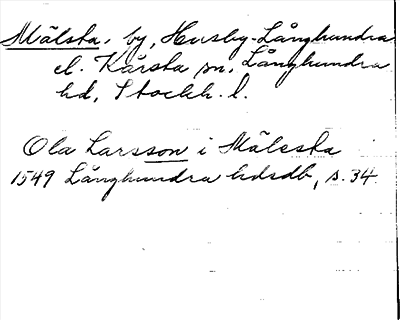 Mälsta, by, Husby-Långhundra
el. Kårsta sn, Långhundra
hd, Stockh. l.
Ola Larsson i Mälesta
1549 Långhundra hdsdb, s. 34